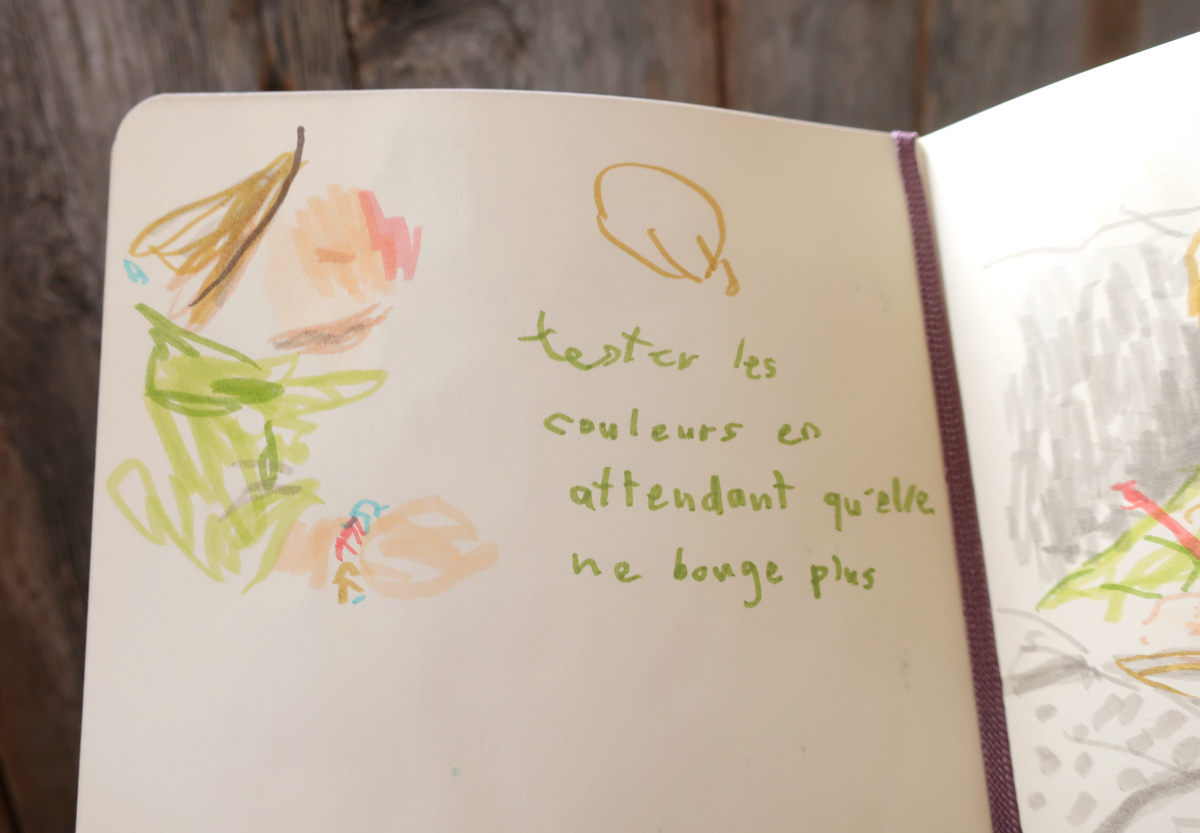 tester les
couleurs en
attendant qu'elle
ne bouge plus